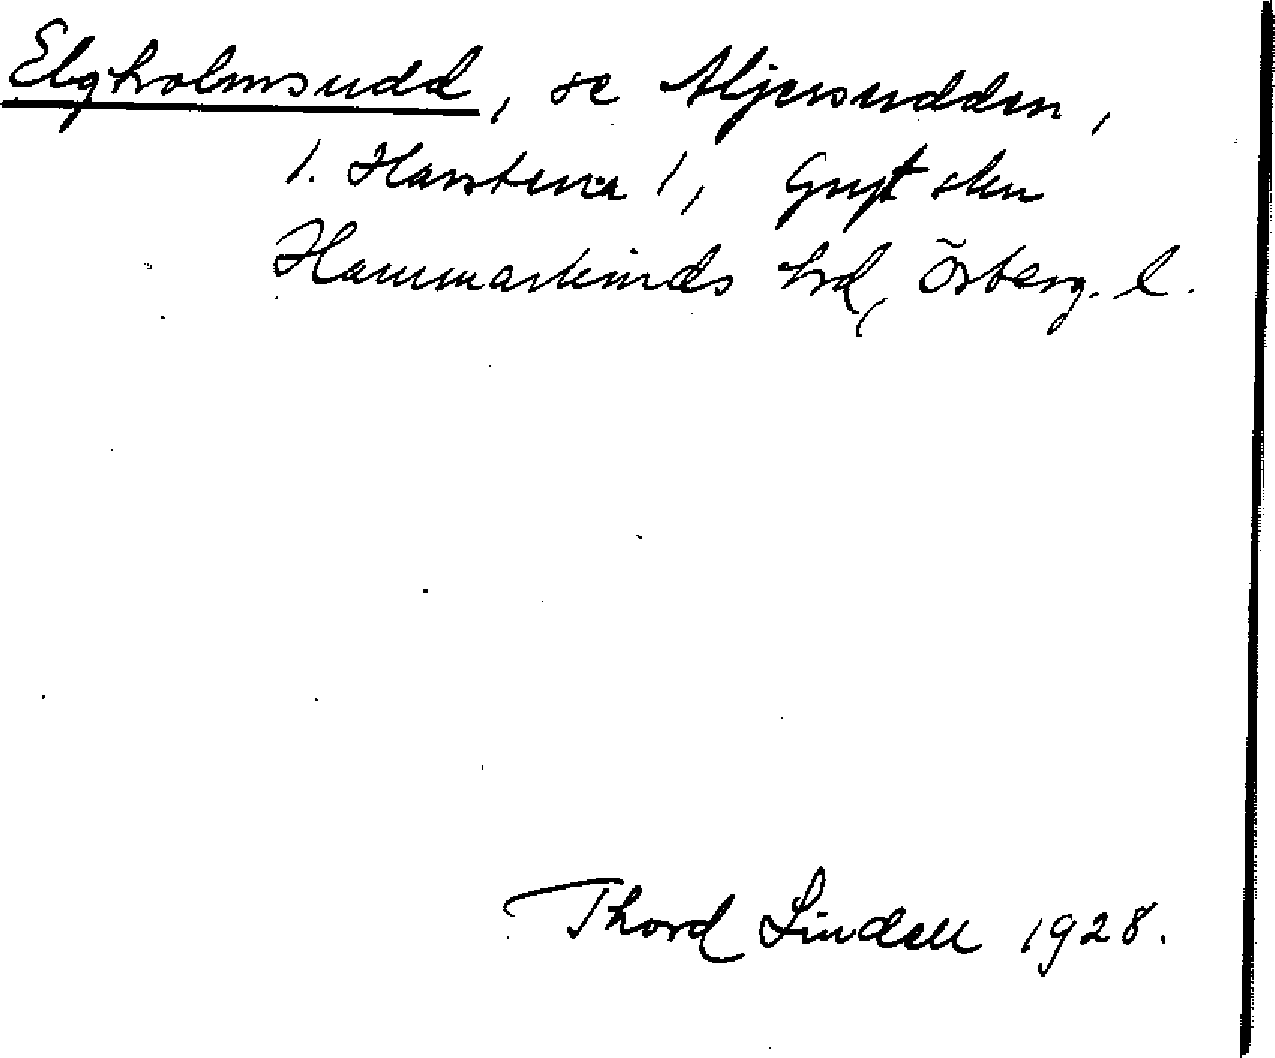 Elgholmsudd, se Aljersudden,
1. Harstena 1, Gryt skn
Hammarkinds hrd, Österg. l.
Thord Lindell 1928.